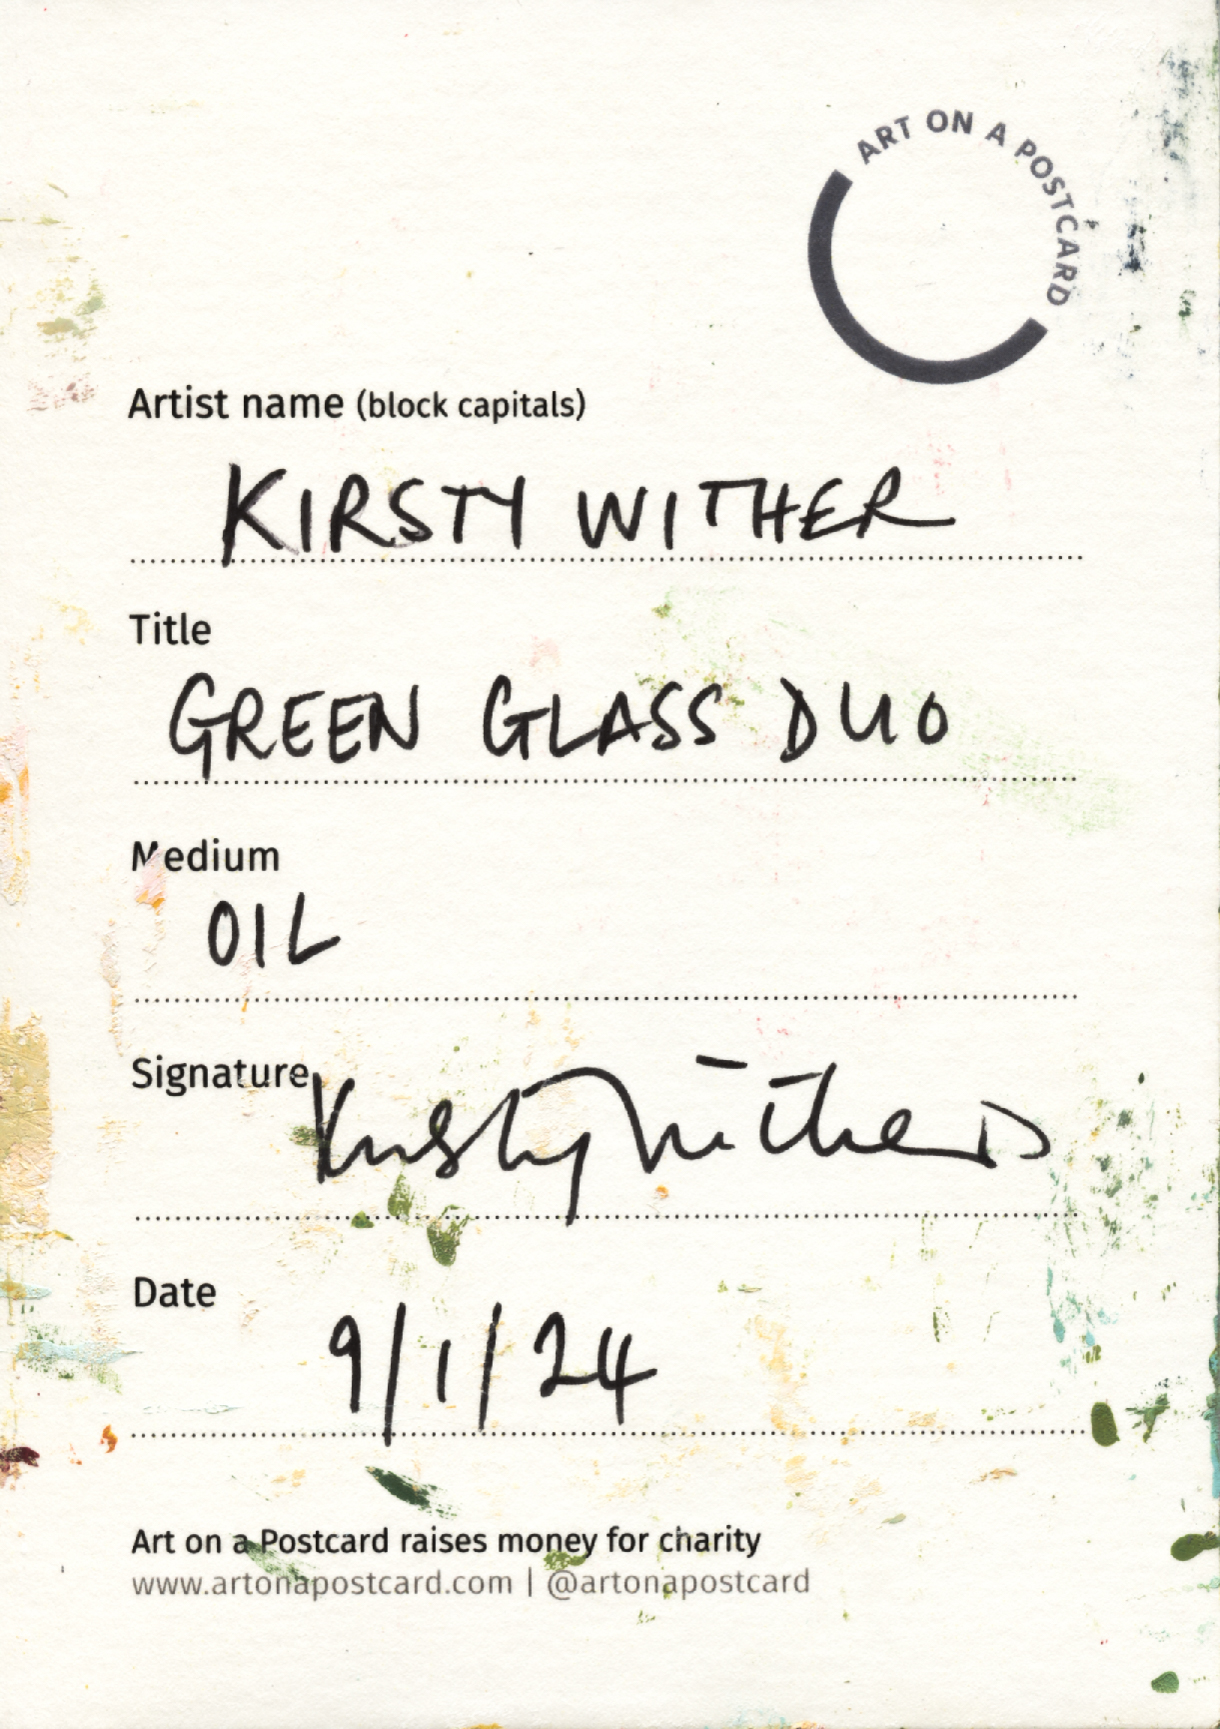 ART ON A POSTCARD
Artist name (block capitals)
KIRSTY WITHER
Title
GREEN GLASS DUO
Medium
OIL
Signature
Kirsty Wither
Date
9/1/24
Art on a Postcard raises money for charity
www.artonapostcard.com | @artonapostcard